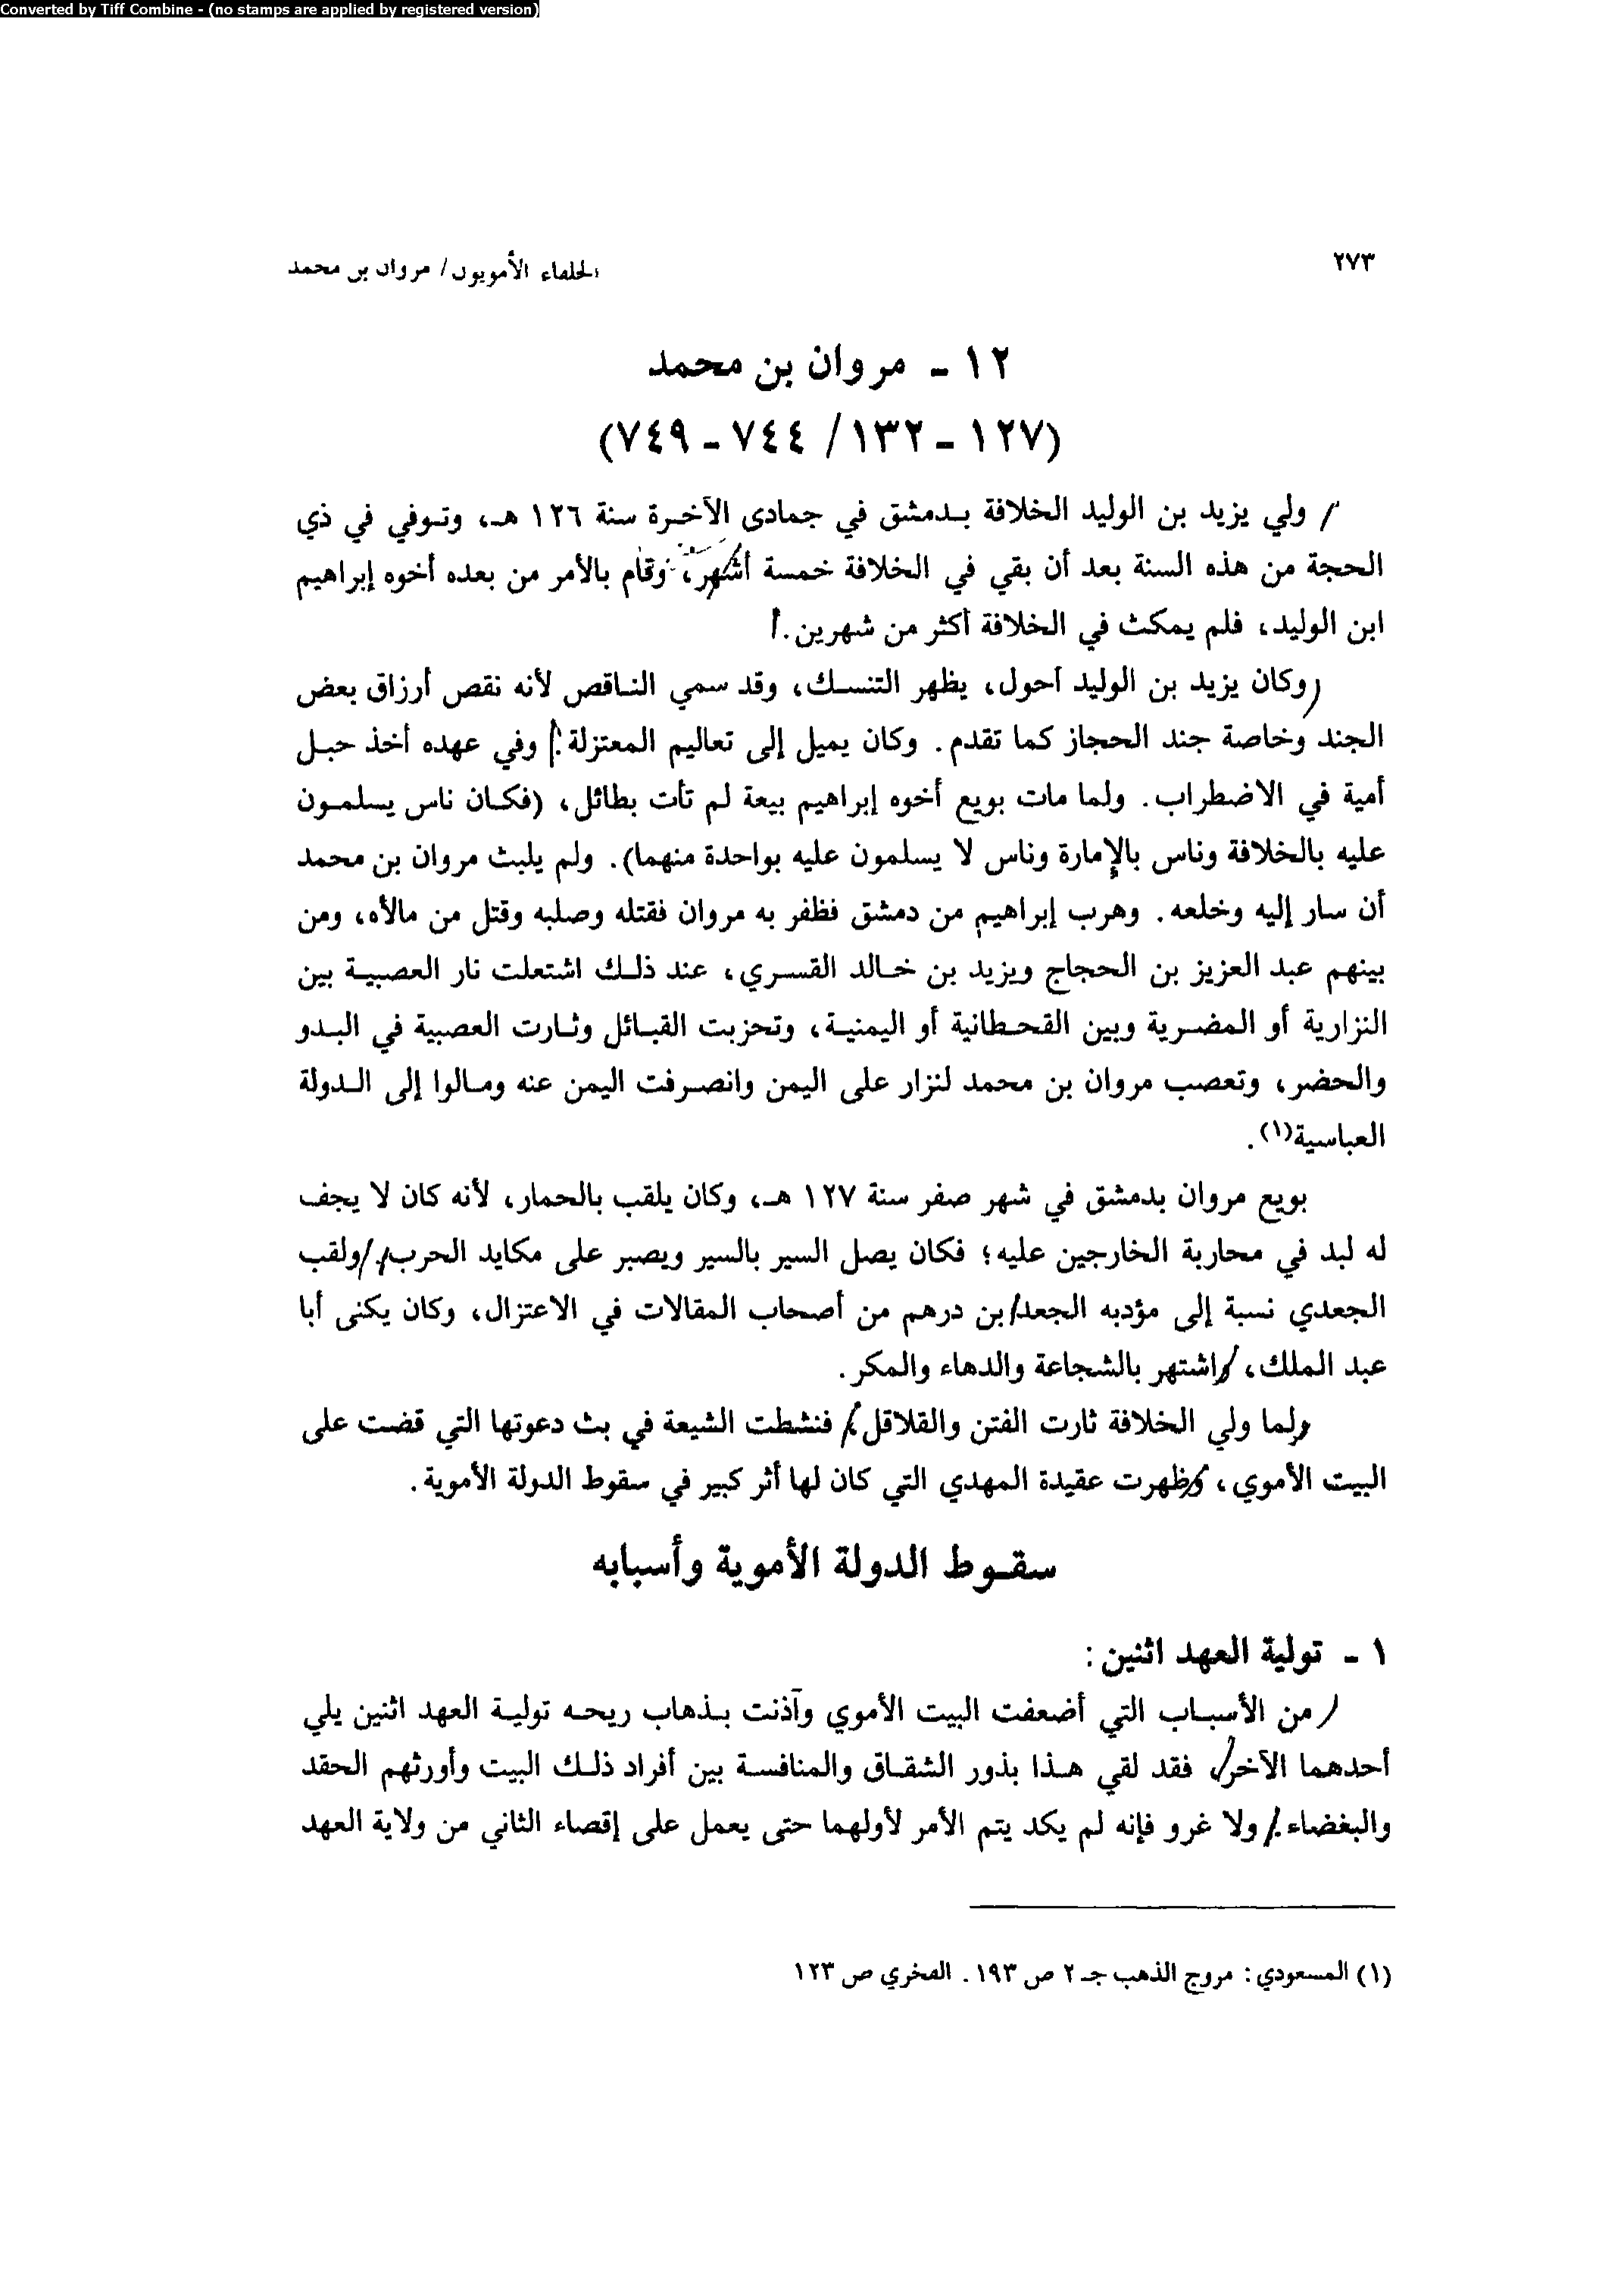 Converted by Tiff Combine - (no stamps are applied by registered version)
٢٧٣
الخلفاء الأمويون / مروان بن محمد
١٢ - مروان بن محمد
(١٢٧ - ١٣٢ / ٧٤٤ - ٧٤٩)
ولي يزيد بن الوليد الخلافة بدمشق في جمادى الآخرة سنة ١٢٦ هـ، وتوفي في ذي
الحجة من هذه السنة بعد أن بقي في الخلافة خمسة أشهر، وقام بالأمر من بعده أخوه إبراهيم
ابن الوليد، فلم يمكث في الخلافة أكثر من شهرين.
وكان يزيد بن الوليد أحول، يظهر التنسك، وقد سمي الناقص لأنه نقص أرزاق بعض
الجند وخاصة جند الحجاز كما تقدم. وكان يميل إلى تعاليم المعتزلة. وفي عهده أخذ حبل
أمية في الاضطراب. ولما مات بويع أخوه إبراهيم بيعة لم تأت بطائل، (فكان ناس يسلمون
عليه بالخلافة وناس بالإمارة وناس لا يسلمون عليه بواحدة منهما). ولم يلبث مروان بن محمد
أن سار إليه وخلعه. وهرب إبراهيم من دمشق فظفر به مروان فقتله وصلبه وقتل من مالأه، ومن
بينهم عبد العزيز بن الحجاج ويزيد بن خالد القسري، عند ذلك اشتعلت نار العصبية بين
النزارية أو المضرية وبين القحطانية أو اليمنية، وتحزبت القبائل وثارت العصبية في البدو
والحضر، وتعصب مروان بن محمد لنزار على اليمن وانصرفت اليمن عنه ومالوا إلى الدولة
العباسية(١).
بويع مروان بدمشق في شهر صفر سنة ١٢٧ هـ، وكان يلقب بالحمار، لأنه كان لا يجف
له لبد في محاربة الخارجين عليه؛ فكان يصل السير بالسير ويصبر على مكايد الحرب. ولقب
الجعدي نسبة إلى مؤدبه الجعد بن درهم من أصحاب المقالات في الاعتزال، وكان يكنى أبا
عبد الملك، واشتهر بالشجاعة والدهاء والمكر.
ولما ولي الخلافة ثارت الفتن والقلاقل، فنشطت الشيعة في بث دعوتها التي قضت على
البيت الأموي، وظهرت عقيدة المهدي التي كان لها أثر كبير في سقوط الدولة الأموية.
سقوط الدولة الأموية وأسبابه
١ - تولية العهد اثنين:
من الأسباب التي أضعفت البيت الأموي وآذنت بذهاب ريحه تولية العهد اثنين يلي
أحدهما الآخر، فقد لقي هذا بذور الشقاق والمنافسة بين أفراد ذلك البيت وأورثهم الحقد
والبغضاء. ولا غرو فإنه لم يكد يتم الأمر لأولهما حتى يعمل على إقصاء الثاني من ولاية العهد
(١) المسعودي: مروج الذهب جـ ٢ ص ١٩٣. الفخري ص ١٢٣